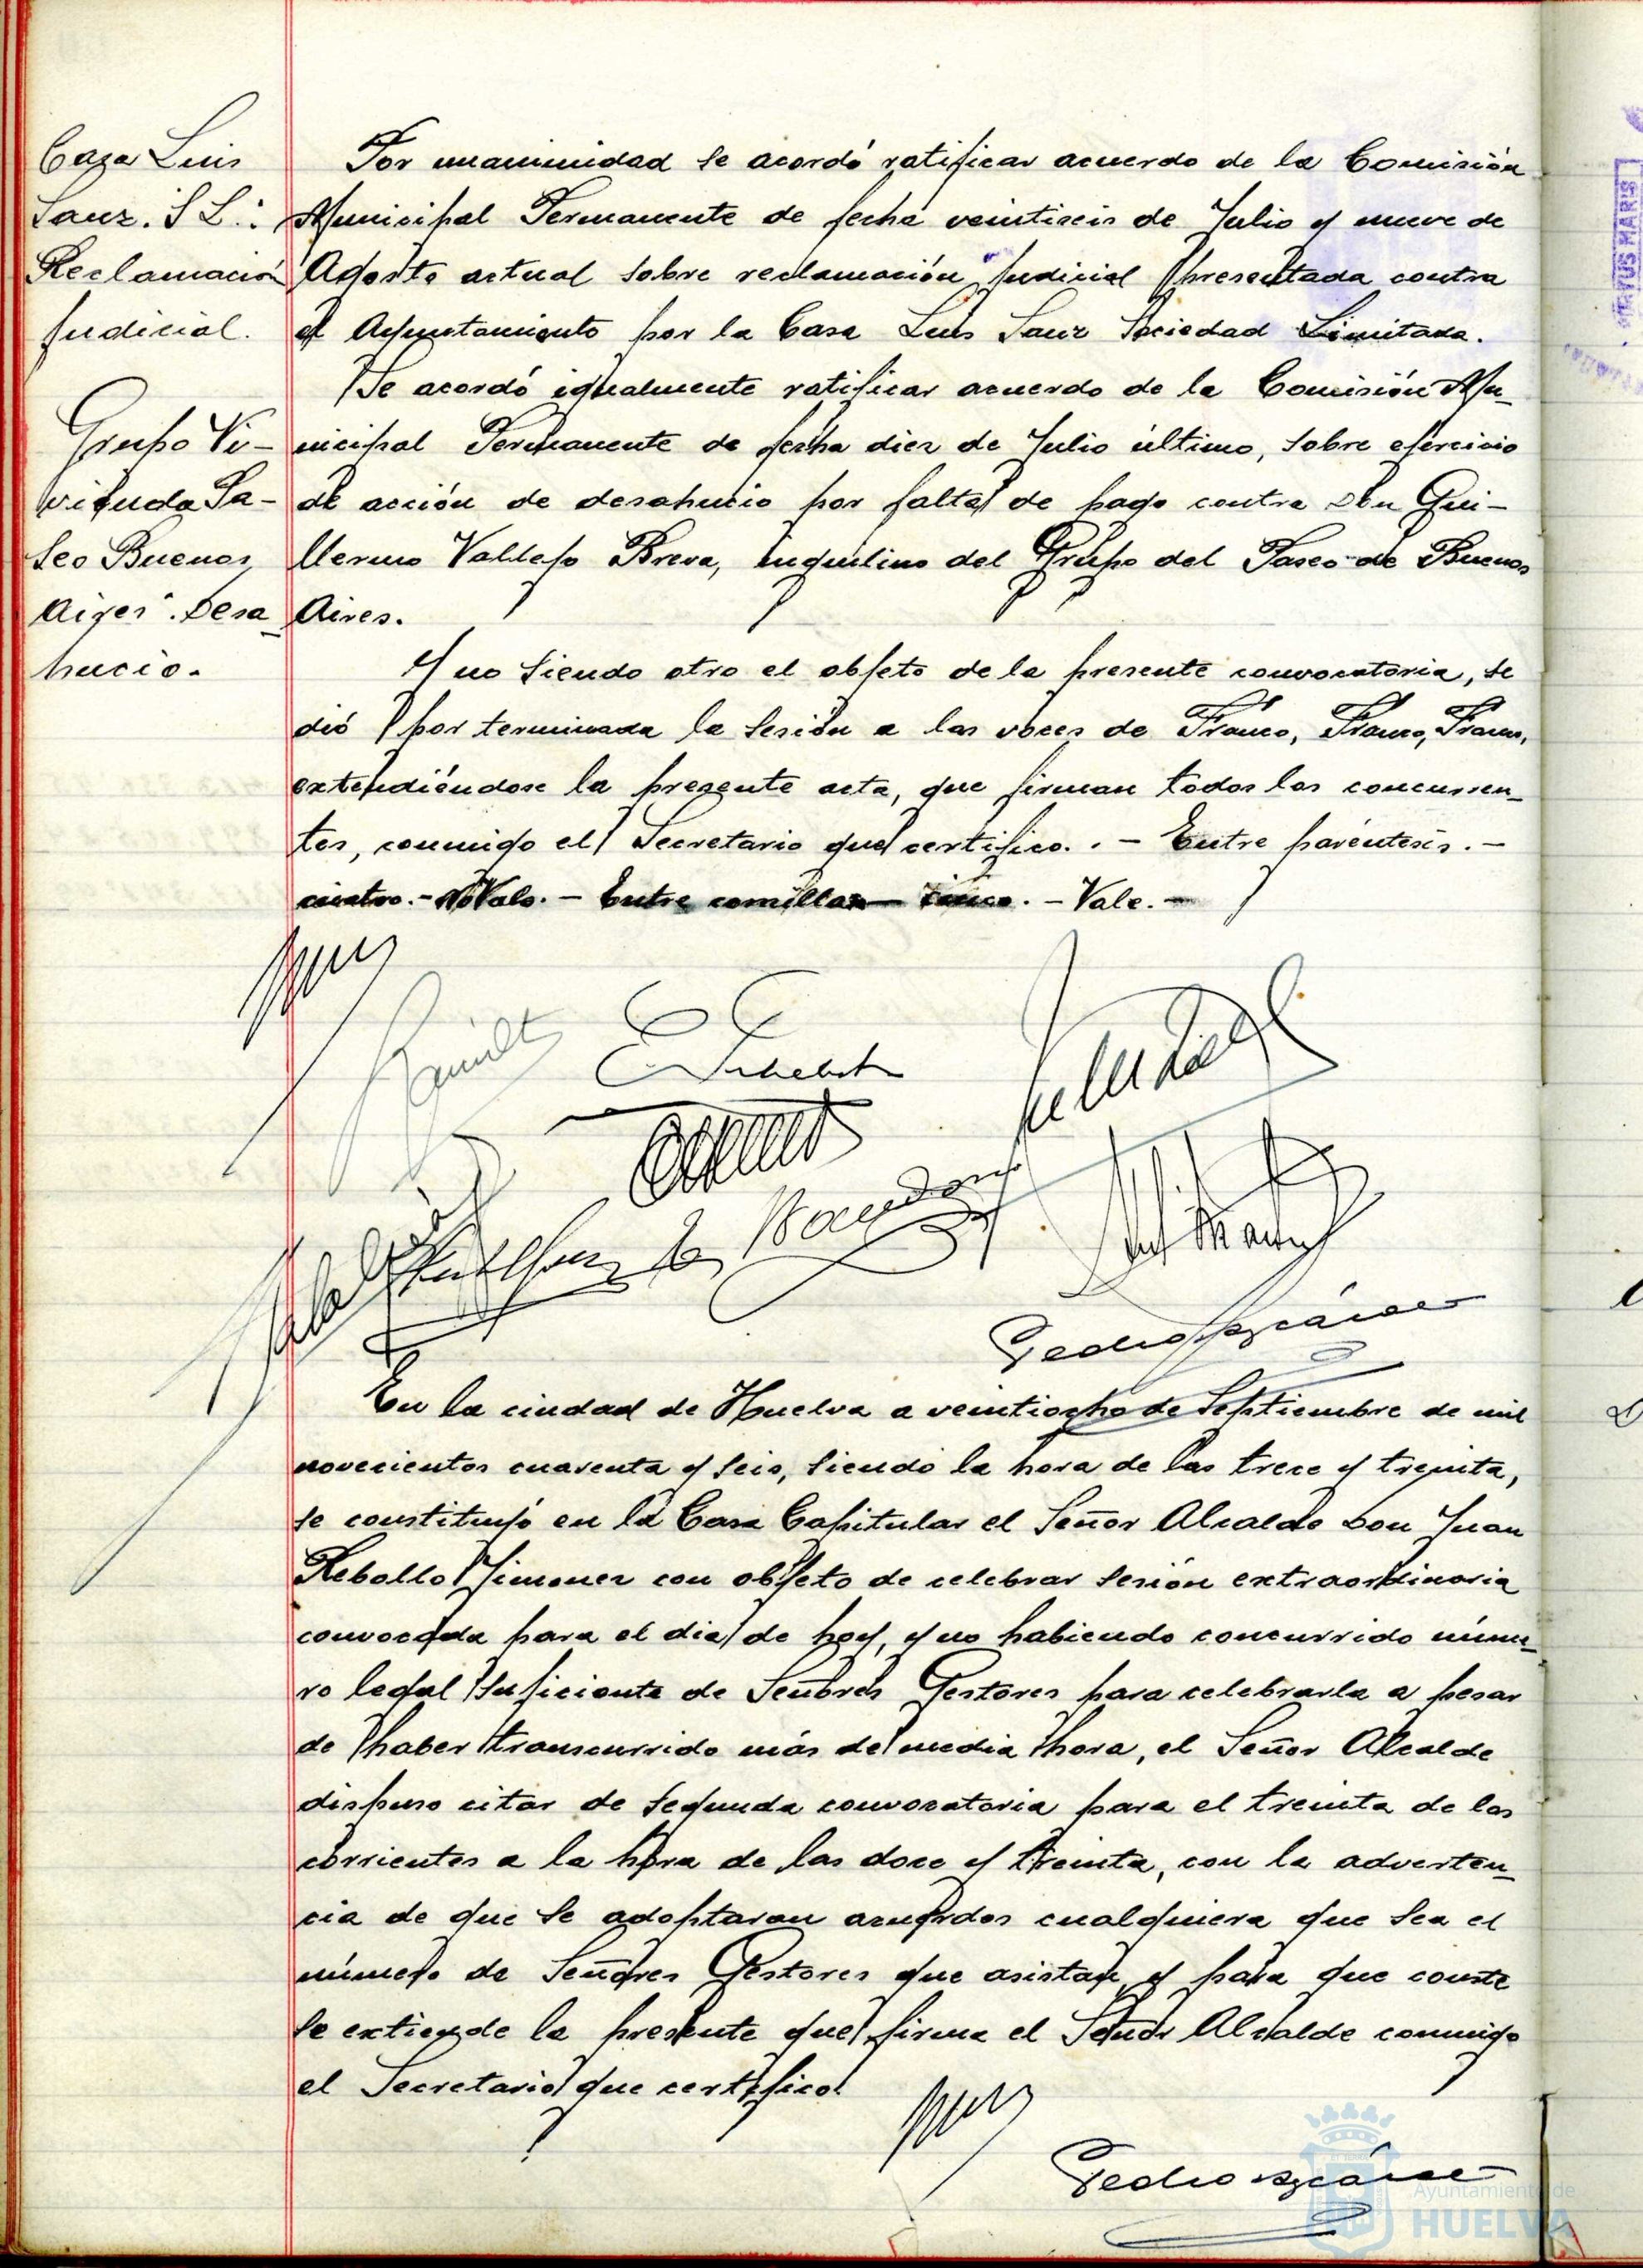 Casa Luis
Sanz. S L.:
Reclamación
judicial.
Por unanimidad se acordó ratificar acuerdo de la Comisión
Municipal Permanente de fecha veintiseis de Julio y nueve de
Agosto actual sobre reclamación judicial presentada contra
el Ayuntamiento por la Casa Luis Sanz Sociedad Limitada.
Grupo Vi-
vienda Pa-
seo Buenos
Aires". Desa
hucio.
Se acordó igualmente ratificar acuerdo de la Comisión Mu-
nicipal Permanente de fecha diez de Julio último, sobre ejercicio
de acción de desahucio por falta de pago contra Don Gui-
llermo Vallejo Breva, inquilino del Grupo del Paseo de Buenos
Aires.
Y no siendo otro el objeto de la presente convocatoria, se
dió por terminada la sesión a las voces de Franco, Franco, Franco,
extendiéndose la presente acta, que firman todos los concurren-
tes, conmigo el Secretario que certifico. . - Entre paréntesis. -
cuatro. - No Vale. - Entre comillas - cinco. - Vale. -
Pedro Azcárate
En la ciudad de Huelva a veintiocho de Septiembre de mil
novecientos cuarenta y seis, siendo la hora de las trece y treinta,
se constituyó en la Casa Capitular el Señor Alcalde Don Juan
Rebollo Jimenez con objeto de celebrar sesión extraordinaria
convocada para el dia de hoy, y no habiendo concurrido núme-
ro legal suficiente de Señores Gestores para celebrarla a pesar
de haber transcurrido más de media hora, el Señor Alcalde
dispuso citar de segunda convocatoria para el treinta de los
corrientes a la hora de las doce y treinta, con la adverten-
cia de que se adoptaran acuerdos cualquiera que sea el
número de Señores Gestores que asistan, y para que conste
se extiende la presente que firma el Señor Alcalde conmigo
el Secretario que certifico.
Pedro Azcárate
Ayuntamiento de
HUELVA